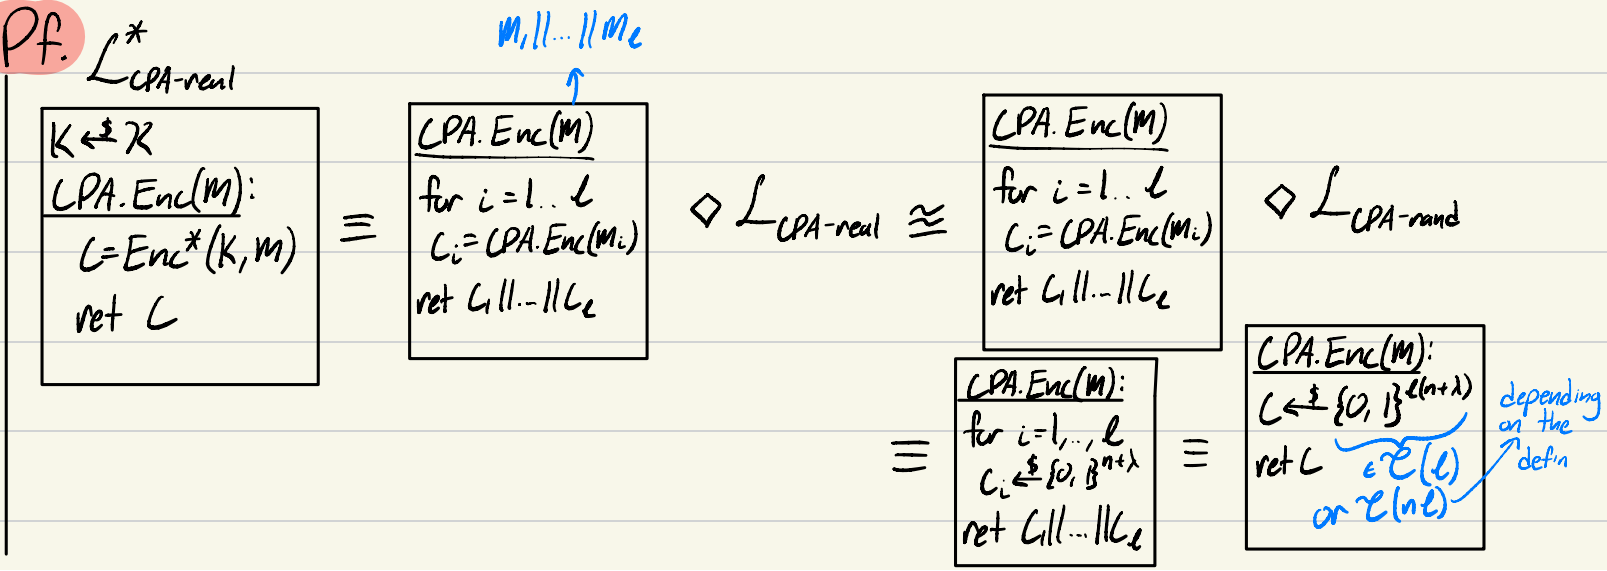 Pf.
L*CPA-real
K ←$ K
CPA.Enc(M):
C=Enc*(K,M)
ret C
≡
M₁||...||Mℓ
↑
CPA.Enc(M)
for i=1..ℓ
Cᵢ=CPA.Enc(Mᵢ)
ret C₁||...||Cℓ
◇ L CPA-real
≋
CPA.Enc(M)
for i=1..ℓ
Cᵢ=CPA.Enc(Mᵢ)
ret C₁||...||Cℓ
◇ L CPA-rand
≡
CPA.Enc(M):
for i=1,..,ℓ
Cᵢ ←$ {0,1}^n+λ
ret C₁||...||Cℓ
≡
CPA.Enc(M):
C ←$ {0,1}^ℓ(n+λ)
ret C
∈ C(ℓ)
or C(nℓ)
depending
on the
defin